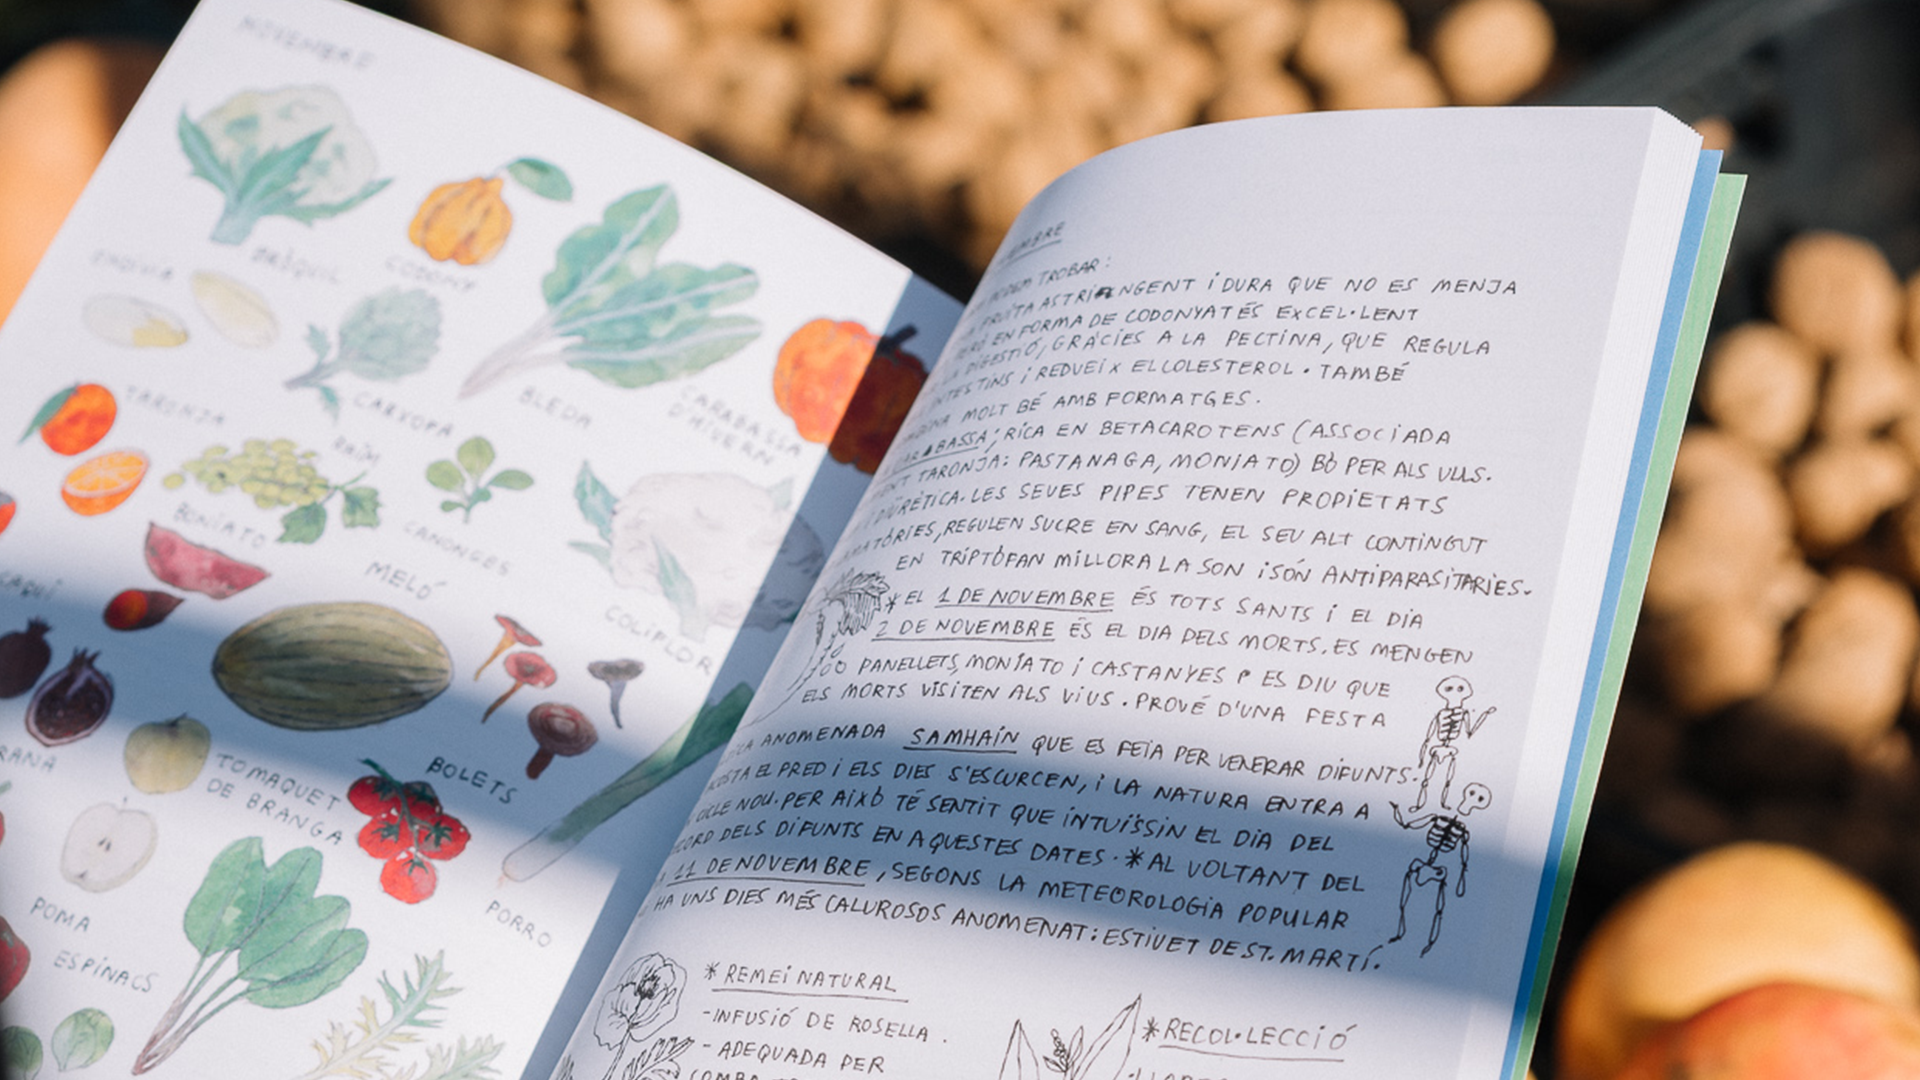 NOVEMBRE
BRÒQUIL
CODONY
ENDÍVIA
CARXOFA
BLEDA
CARABASSA
D'HIVERN
TARONJA
RAÏM
BONIATO
CANONGES
MELÓ
COLIFLOR
CAQUI
TOMAQUET
DE BRANGA
BOLETS
POMA
PORRO
ESPINACS
PODEM TROBAR:
FRUITA ASTRINGENT I DURA QUE NO ES MENJA
PERÒ EN FORMA DE CODONYAT ÉS EXCEL·LENT
LA DIGESTIÓ, GRÀCIES A LA PECTINA, QUE REGULA
INTESTINS I REDUEIX EL COLESTEROL. TAMBÉ
MOLT BÉ AMB FORMATGES.
CARABASSA; RICA EN BETACAROTENS (ASSOCIADA
TARONJA: PASTANAGA, MONIATO) BÒ PER ALS ULLS.
DIÜRÈTICA. LES SEVES PIPES TENEN PROPIETATS
REGULEN SUCRE EN SANG, EL SEU ALT CONTINGUT
EN TRIPTÒFAN MILLORA LA SON I SÓN ANTIPARASITÀRIES.
* EL 1 DE NOVEMBRE ÉS TOTS SANTS I EL DIA
2 DE NOVEMBRE ÉS EL DIA DELS MORTS. ES MENGEN
PANELLETS, MONIATO I CASTANYES ES DIU QUE
ELS MORTS VISITEN ALS VIUS. PROVÉ D'UNA FESTA
ANOMENADA SAMHAIN QUE ES FEIA PER VENERAR DIFUNTS.
EL PRED I ELS DIES S'ESCURCEN, I LA NATURA ENTRA A
CICLE NOU. PER AIXÒ TÉ SENTIT QUE INTUÏSSIN EL DIA DEL
DELS DIFUNTS EN AQUESTES DATES. * AL VOLTANT DEL
11 DE NOVEMBRE, SEGONS LA METEOROLOGIA POPULAR
HA UNS DIES MÉS CALUROSOS ANOMENAT: ESTIUET DE ST. MARTÍ.
* REMEI NATURAL
- INFUSIÓ DE ROSELLA.
- ADEQUADA PER
* RECOL·LECCIÓ